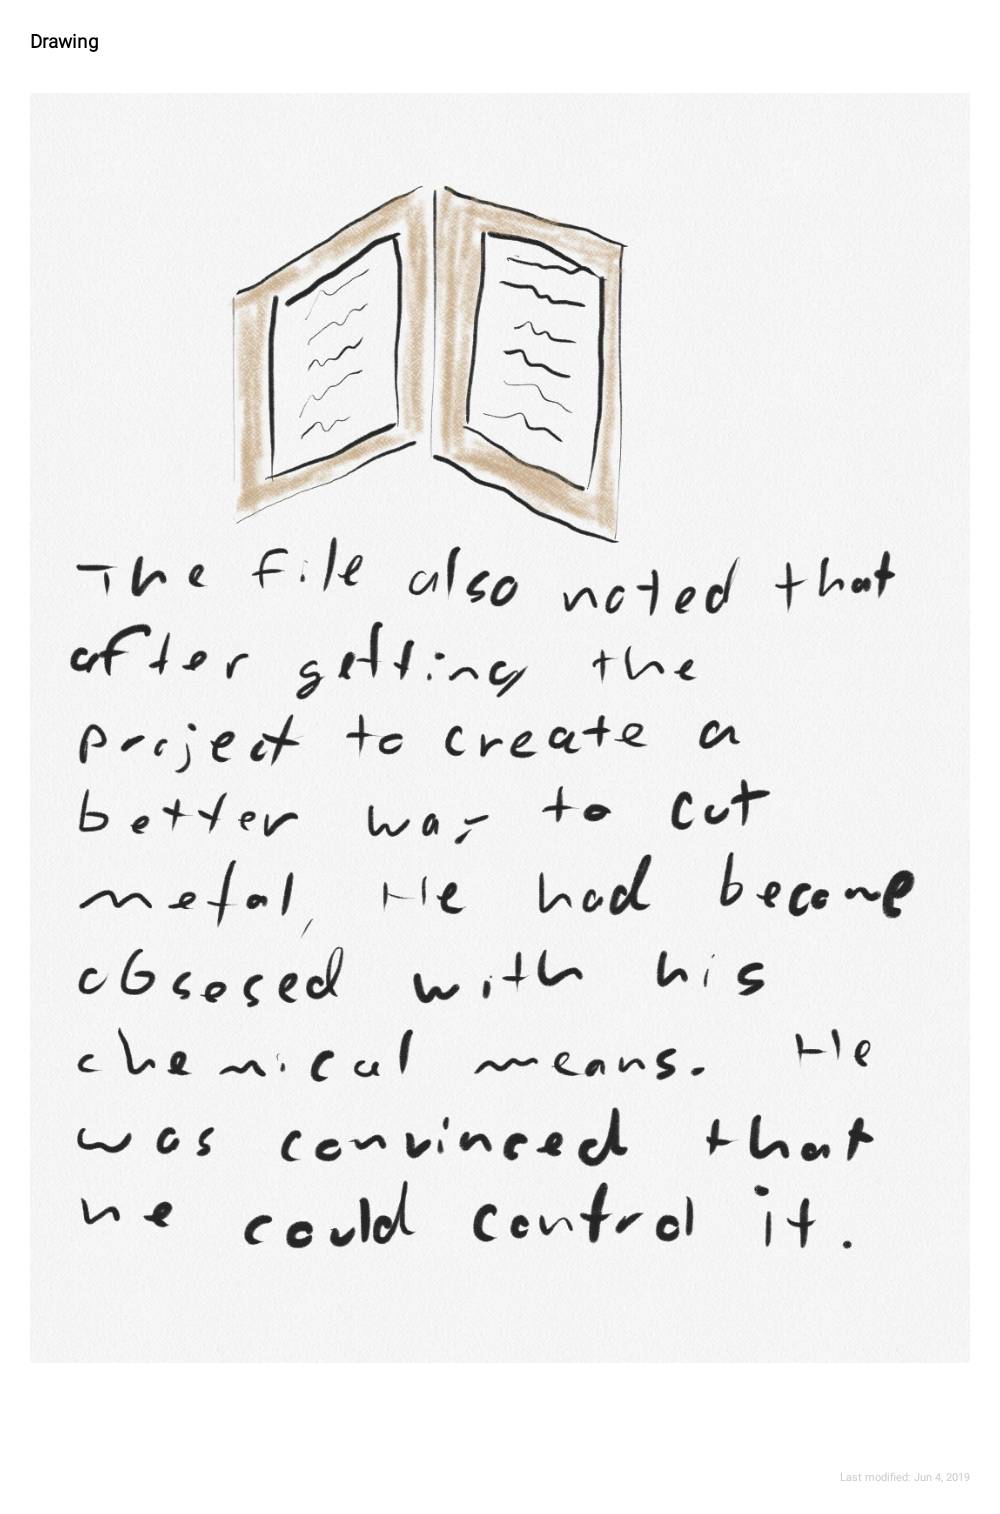 Drawing
The file also noted that
after getting the
project to create a
better way to cut
metal, He had become
obsesed with his
chemical means. He
was convinced that
he could control it.
Last modified: Jun 4, 2019